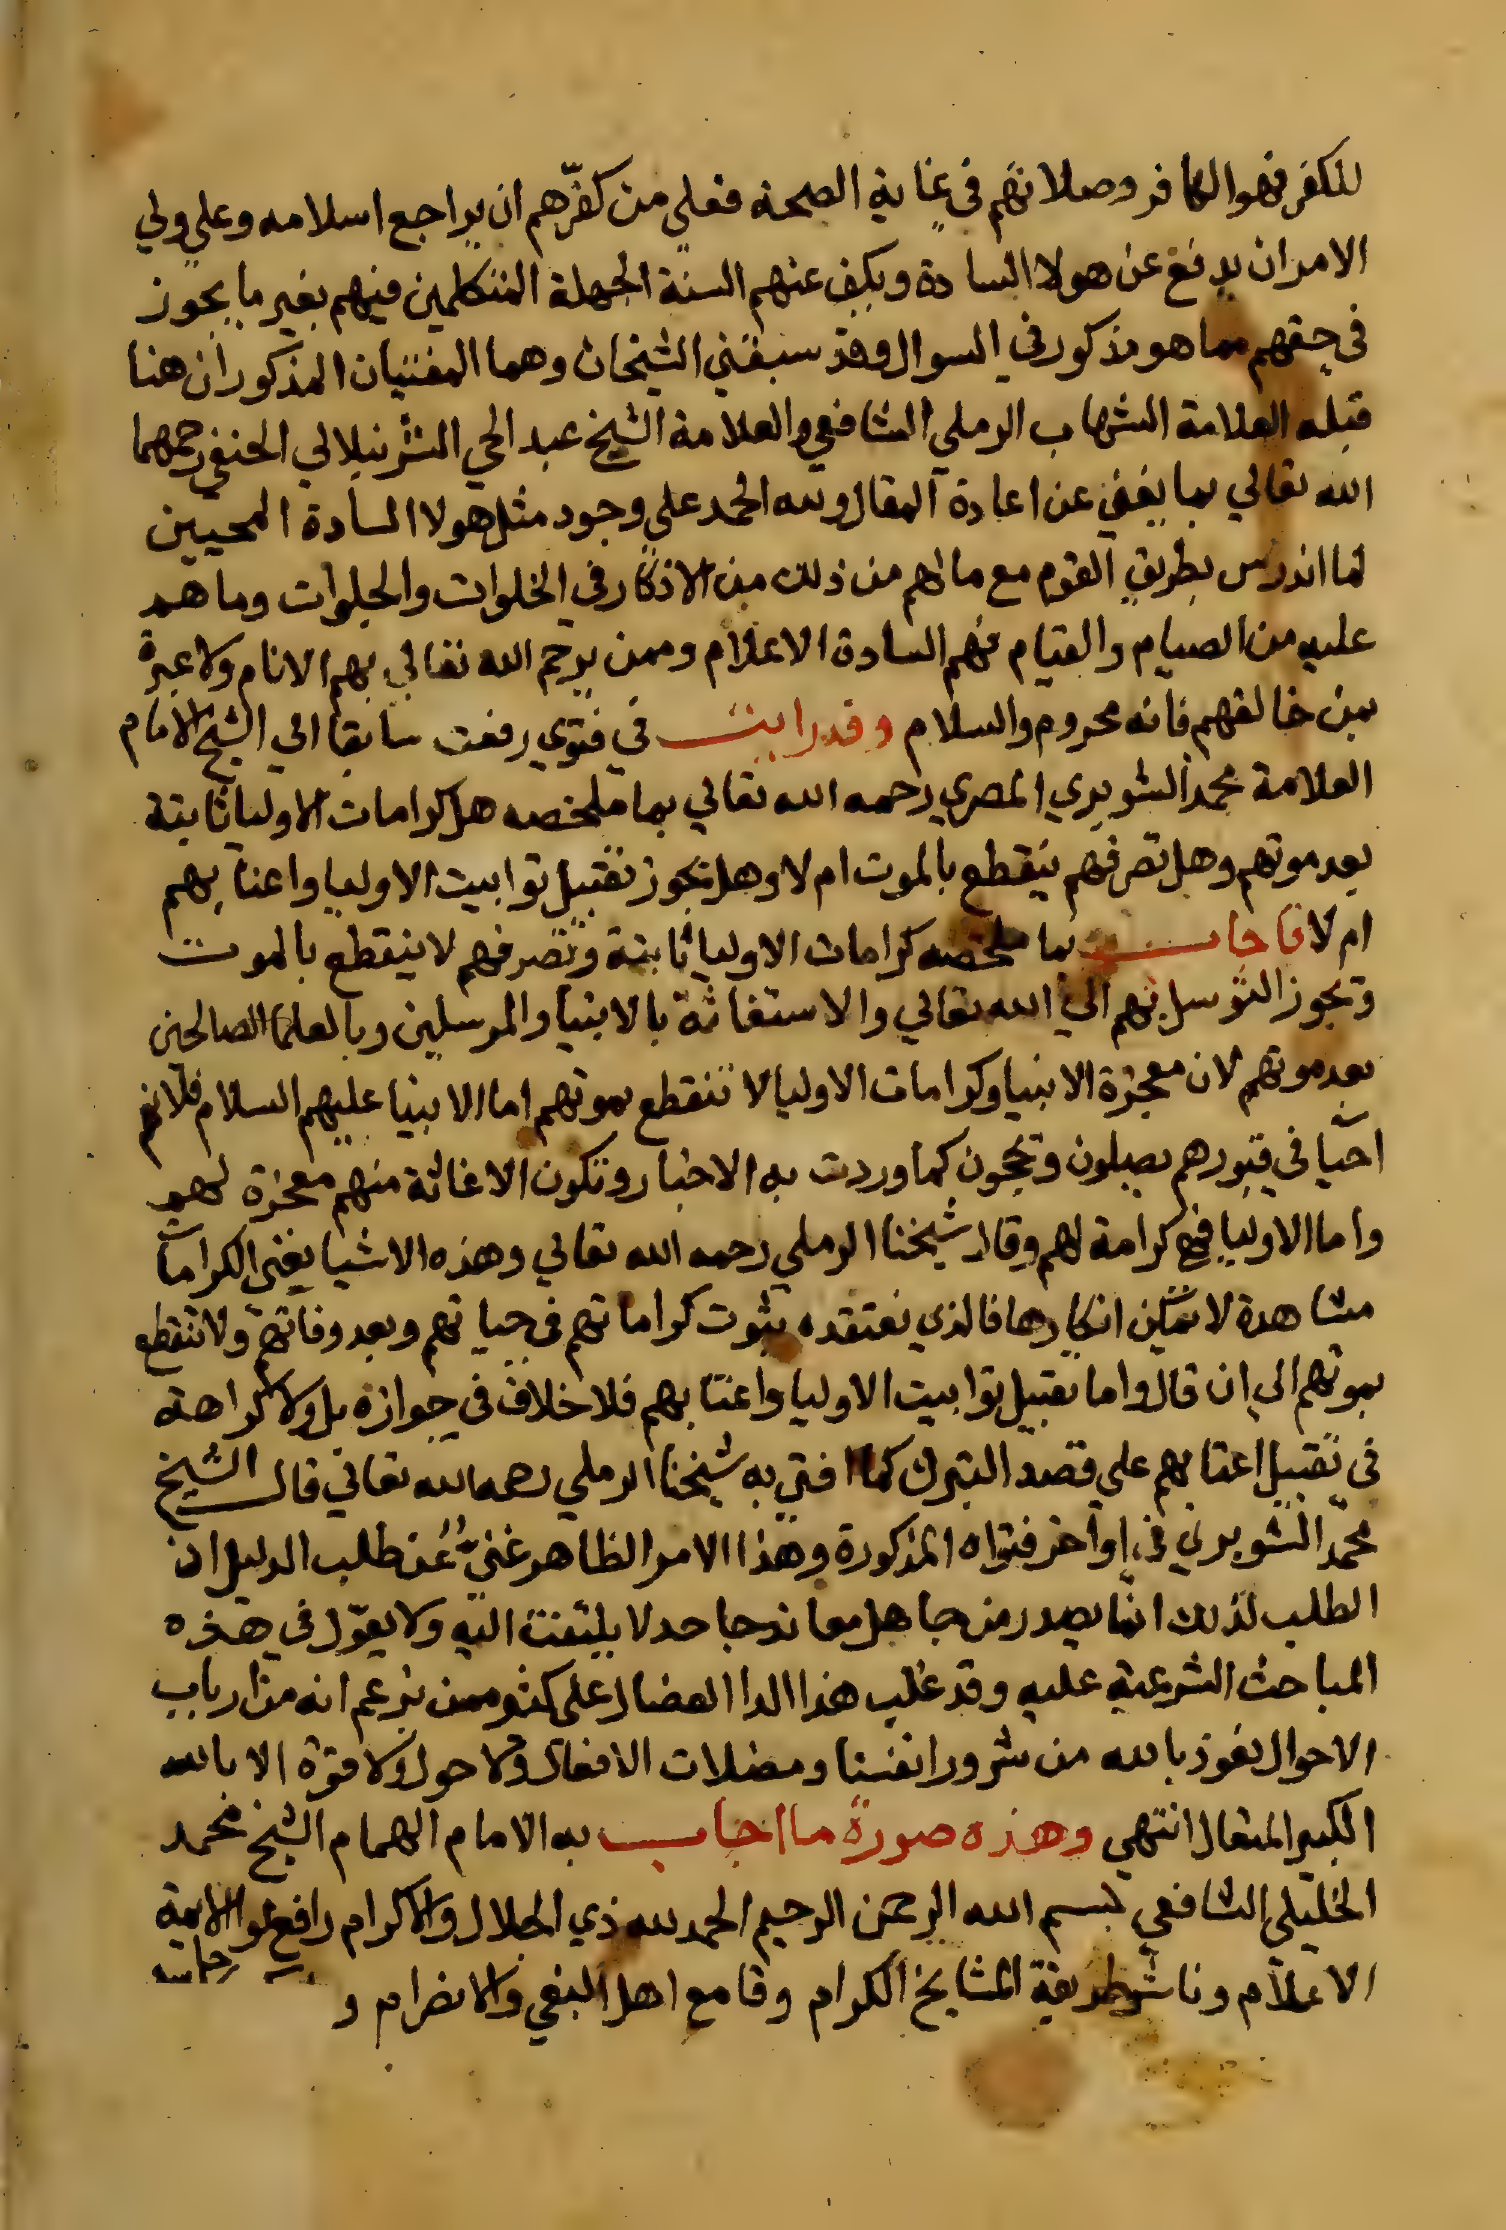 للكفر فهو الكافر وصلاتهم في غاية الصحة فعلي من كفّرهم ان يراجع اسلامه وعلي ولي
الامر ان يدفع عن هولا السادة ويكف عنهم السنة الجهلة المتكلمين فيهم بغير ما يجوز
في حقهم مما هو مذكور في السوال وقد سبقني الشيخان وهما المفتيان المذكوران هنا
قبله العلامة الشهاب الرملي الشافعي والعلامة الشيخ عبد الحي الشرنبلالي الحنفي رحمهما
الله تعالي بما يغني عن اعادة المقال ولله الحمد علي وجود مثل هولا السادة المحيين
لما اندرس بطريق القوم مع مالهم من ذلك من الاذكار في الخلوات والجلوات وما هم
عليه من الصيام والقيام فهم السادة الاعلام وممن يرحم الله تعالي بهم الانام ولا عبرة
بمن خالفهم فانه محروم والسلام وقد رايت في فتوي رفعت سابقا الي الشيخ الامام
العلامة محمد الشوبري المصري رحمه الله تعالي بما ملخصه هل كرامات الاوليا ثابتة
بعد موتهم وهل تصرفهم ينقطع بالموت ام لا وهل يجوز تقبيل توابيت الاوليا واعتابهم
ام لا فاجاب بما ملخصه كرامات الاوليا ثابتة وتصرفهم لا ينقطع بالموت
ويجوز التوسل بهم الي الله تعالي والاستغاثة بالانبيا والمرسلين وبالعلما الصالحين
بعد موتهم لان معجزة الانبيا وكرامات الاوليا لا تنقطع بموتهم اما الانبيا عليهم السلام فلانهم
احيا في قبورهم يصلون ويحجون كما وردت به الاخبار وتكون الاغاثة منهم معجزة لهم
واما الاوليا فهي كرامة لهم وقال شيخنا الرملي رحمه الله تعالي وهذه الاشيا يعني الكرامات
مشاهدة لا يمكن انكارها فالذي نعتقده ثبوت كراماتهم في حياتهم وبعد وفاتهم ولا تنقطع
بموتهم الي ان قال واما تقبيل توابيت الاوليا واعتابهم فلا خلاف في جوازه بل ولا كراهة
في تقبيل اعتابهم علي قصد التبرك كما افتي به شيخنا الرملي رحمه الله تعالي قال الشيخ
محمّد الشوبري في اواخر فتواه المذكورة وهذا الامر الظاهر غنيّ عن طلب الدليل اذ
الطلب لذلك انما يصدر من جاهل معاند جاحد لا يلتفت اليه ولا يعوّل في هذه
المباحث الشرعية عليه وقد غلب هذا الدا العضال علي كثير ممن يزعم انه من ارباب
الاحوال نعوذ بالله من شرور انفسنا ومضلات الافعال ولا حول ولا قوة الا بالله
الكبير المتعال انتهي وهذه صورة ما اجاب به الامام الهمام الشيخ محمد
الخليلي الشافعي بسم الله الرحمن الرحيم الحمد لله ذي الجلال والاكرام رافع لوا الايمة
الاعلام وناشر طريقة المشايخ الكرام وقامع اهل البغي والانضرام و